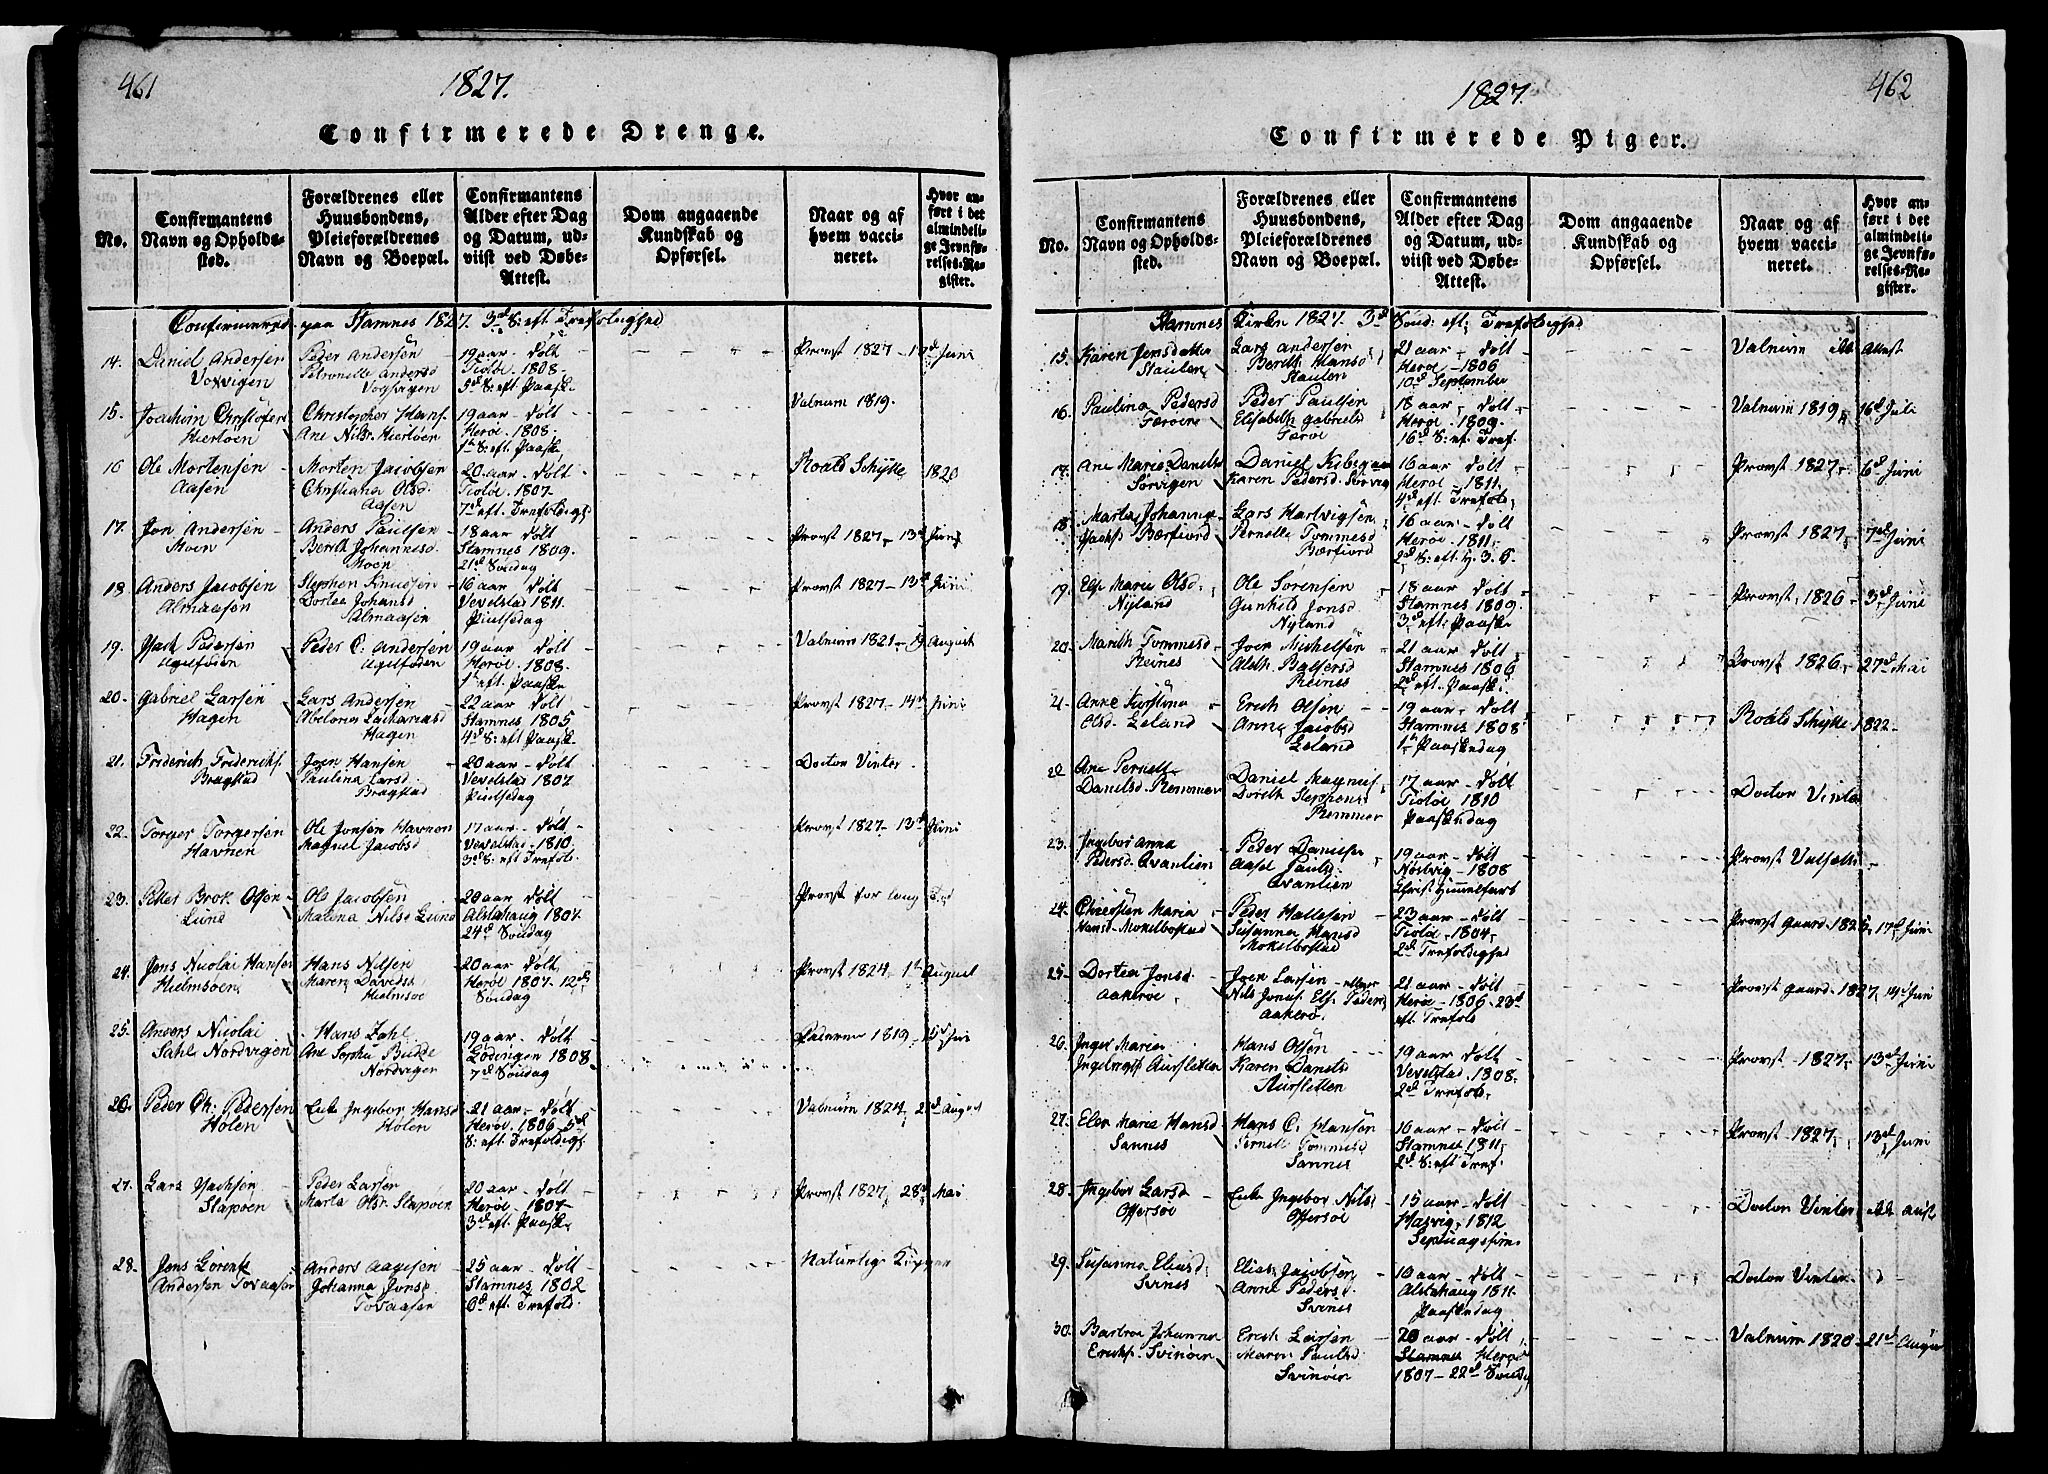 461
1827.
Confirmerede Drenge.
No.
Confirmantens Navn og Opholdssted.
Forældrenes eller Huusbondens, Pleieforældrenes Navn og Boepæl.
Confirmantens Alder efter Dag og Datum, udviist ved Døbe-Attest.
Dom angaaende Kundskab og Opførsel.
Naar og af hvem vaccineret.
Hvor anført i det almindelige Jevnførelses-Register.
Confirmerede paa Stamnes 1827. 3d S: eft Trefoldighed
14. Daniel Andersen
Voxvigen
Peder Andersen
Petronelle Andersd
19 aar - Døbt
Tiøtøe. 1808.
5d S: eft Paaske
Provst 1827 - Juni
15. Joachim Christofers
Hiertøen
Christopher Hans.
Ane Nilsr. Hiertøen
19 aar - Døbt
Herøe. 1808.
1ste S: eft Paaske
Valnum 1819.
16 Ole Mortensen
Aasen
Morten Jacobsen
Christiana Olsd.
Aasen
20 aar - Døbt
Tiøtøe. 1807.
7d eft. Trefoldigh
Roald Schytte 1820
17. Jon Andersen
Moen
Anders Paulsen
Bereth Johannesd
Moen
18 aar - Døbt
Stamnes 1809.
21d Søndag
Provst 1827 - 13d Juni
18 Anders Jacobsen
Almaasen
Stephen Knudsen
Dortea Johansd
Almaasen
16 aar - Døbt
Vevelstad 1811.
Pintsedag
Provst 1827 - 13d Juni
19. Isach Pedersen
Peder C. Andersen
19 aar - Døbt
Herøe. 1808.
1ste eft. Paaske
Valnum 1821 - 9 August
20. Gabriel Larsen
Hagen
Lars Andersen
Abelona Zachariasd
Hagen
22 aar - Døbt
Stamnes 1805
4d S: eft Paaske
Provst 1827 - 14d Juni
21. Friderich Friderichs.
Bragstad
Joen Hansen
Paulina Larsd.
Bragstad
20 aar - Døbt
Vevelstad 1807
Pintsedag
Doctor Vinter
22. Torger Torgersen
Havnen
Ole Jonsen Havnen
Magnel Jacobsd
17 aar - Døbt
Vevelstad - 1810.
3d S: eft Trefold.
Provst 1827 - 13d Juni
23. Petter Brok Olsen
Lund
Ole Jacobsen
Malena Nilsd Lund
20 aar - Døbt
Alstahaug 1807.
24d Søndag
Provst for lang Tid
24. Jens Nicolai Hansen
Hielmsøen
Hans Nilsen
Maren Davidsd
Hielmsøe
20 aar - Døbt
Herøe 1807 - 12d
Søndag
Provst 1824 - 1ste August
25. Anders Nicolai
Zahl Nordvigen
Hans Zahl
Ane Sophie Budde
Nordvigen
19 aar - Døbt
Lødingen 1808.
7d Søndag
Pedersen 1819 - 5d Juni
26. Peder Ch: Pedersen
Holen
Enke Ingebor Hansd
Holen
21 aar - Døbt
Herøe. 1806 - 5d
S: eft Trefoldigh
Valnum 1824 - 2d August
27. Lars Isachsen
Slapøen
Peder Larsen
Marta Olsr Slapøen
20 aar - Døbt
Herøe - 1807 -
3d eft. Paaske
Provst 1827 - 28d Mai
28. Jens Lorentz
Andersen Tovaasen
Anders Aagesen
Johanna Jonsd
Tovaasen
25 aar - Døbt
Stamnes 1802
6d eft. Trefold.
Naturlige Kopper
462
1827.
Confirmerede Piger.
No.
Confirmantens Navn og Opholdssted.
Forældrenes eller Huusbondens, Pleieforældrenes Navn og Boepæl.
Confirmantens Alder efter Dag og Datum, udviist ved Døbe-Attest.
Dom angaaende Kundskab og Opførsel.
Naar og af hvem vaccineret.
Hvor anført i det almindelige Jevnførelses-Register.
Stamnes Kirke 1827. 3d Sønd: eft: Trefoldighed
15. Karen Jensdatter
Staulen
Lars Andersen
Bereth Hansd
Staulen
21 aar - Døbt
Herøe - 1806
10d September
Valnum Attest
16. Paulina Pedersd
Færøen
Peder Paulsen
Elisabeth Gabrielsd
Færøe
18 aar - Døbt
Herøe. 1809.
16d S: ef. Tref.
Valnum 1819 16d Juli
17. Ane Maria Danielsd
Sørvigen
Daniel
Karen Pedersd. Sørvig
16 aar - Døbt
Herøe. 1811.
4d eft. Trefold
Provst 1827 - 6d Juni
18. Marta Johanna
Isachs. Bærfiord
Lars Hartvigsen
Pernelle Tommesd
Bærfiord
16 aar - Døbt
Herøe. 1811.
2d S: eft. H. 3. K.
Provst 1827 - 7d Juni
19. Else Marie Olsd.
Nyland
Ole Sørensen
Gunhild Jonsd
Nyland
18 aar - Døbt
Stamnes 1809.
3d eft. Paaske
Provst 1826 - 3d Juni
20. Mareth Tommesd
Reines
Joen Michelsen
Reines
21 aar - Døbt
Stamnes 1806
2d eft. Paaske
Provst 1826 - 27d Mai
21. Anne Kirstina
Olsd. Leland
Erich Olsen
Anna Jacobsd
Leland
19 aar - Døbt
Stamnes 1808
1ste Paaskedag
Roald Schytte 1822.
22 Ane Pernelle
Danielsd Remmen
Daniel Magnus.
Dorth Stephensd
Remmen
17 aar - Døbt
Tiøtøe 1810
Paaskedag
Doctor Vinter
23. Ingebor Anna
Pedersd. Qvanlien
Peder Danielsen
Aasel Paulsd.
Qvanlien
19 aar - Døbt
Nordvig - 1808
Christi Himmelfart
Provst
24. Christen Maria
Hansd. Mokelbostad
Peder Hallesen
Susanna Hansd
Mokelbostad
23 aar - Døbt
Tiøtøe - 1804
2d Trefoldighed
Provst Gaard 1825 - 17d Juni
25. Dortea Jonsd.
Aakerøe
Joen Larsen - eller
Nils Jonss. Els. Peders.
Aakerø.
21 aar - Døbt
Herøe - 1806 - 23d
eft. Trefold
Provst Gaard 1827 14d Juni
26. Inger Maria
Ingebrigtsd Aursletten
Hans Olsen
Karen Danielsd
Aursletten
19 aar - Døbt
Vevelstad. 1808.
2d Trefold.
Provst 1827 - 13d Juni
27. Elen Maria Hansd
Sannes
Hans C. Hansen
Pernelle Tommesd
Sannes
16 aar - Døbt
Stamnes 1811.
2d S: eft Tref.
Provst 1827 - 13d Juni
28. Ingebor Larsd
Offersøe
Enke Ingebor Nilsd
Offersøe
15 aar - Døbt
Hadvig, 1812
Septuagesima
Doctor Vinter
29. Susanna Eliasd
Svines
Elias Jacobsen
Anne Pedersd.
Svines
16 aar - Døbt
Alstahaug 1811.
Paaskedag
Doctor Vinter
30. Barbroe Johanna
Erichs. Svinøen
Erich Larsen
Maren Paulsd
Svinøen
20 aar - Døbt
Stamnes Herøe
1807 - 22d Søndag
Valnum 1820 - 21d August